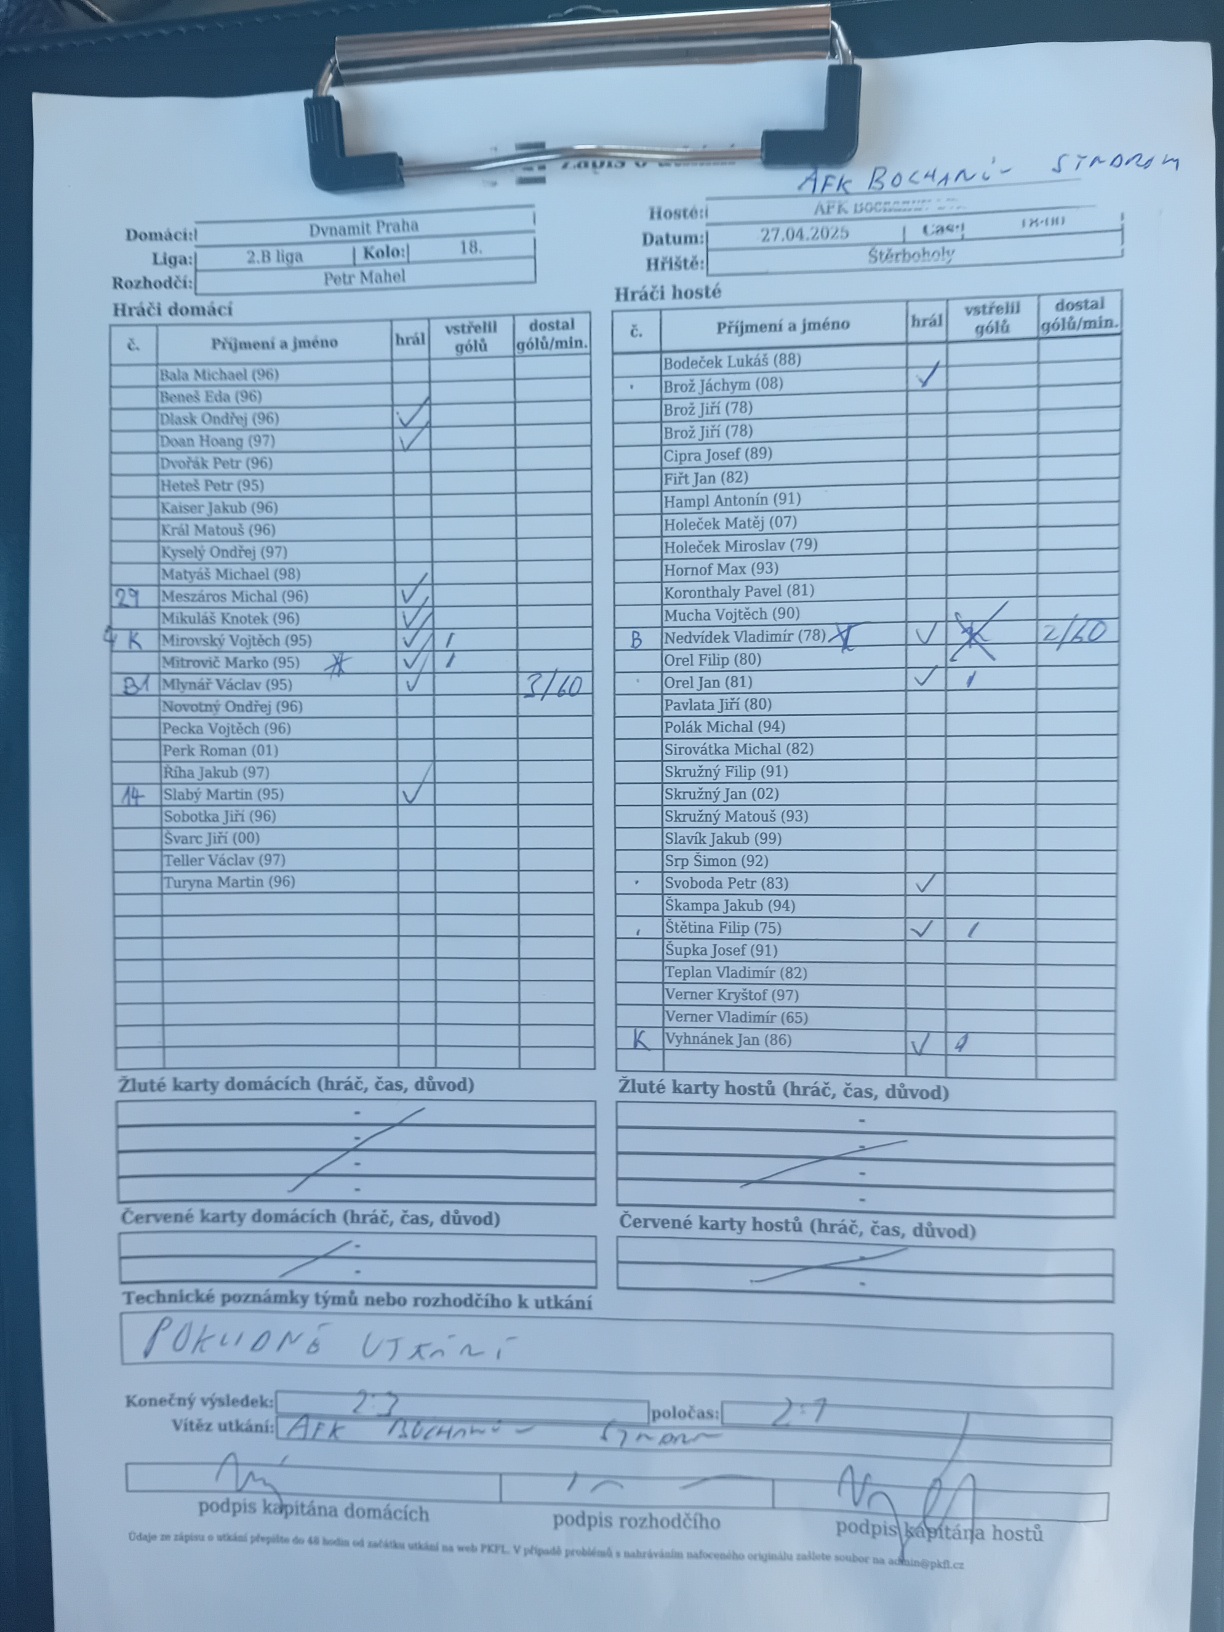 AFK BOCHANÍ- SYNDROM
Domácí: Dynamit Praha
Liga: 2.B liga Kolo: 18.
Rozhodčí: Petr Mahel
Hosté: AFK
Datum: 27.04.2025 Čas: 18:00
Hřiště: Štěrboholy
Hráči domácí
č. Příjmení a jméno hrál vstřelil gólů dostal gólů/min.
Bala Michael (96)
Beneš Eda (96)
Dlask Ondřej (96) ✓
Doan Hoang (97) ✓
Dvořák Petr (96)
Heteš Petr (95)
Kaiser Jakub (96)
Král Matouš (96)
Kyselý Ondřej (97)
Matyáš Michael (98)
29 Meszáros Michal (96) ✓
Mikuláš Knotek (96) ✓
4 K Mirovský Vojtěch (95) ✓ 1
Mitrovič Marko (95) ✓ 1
B1 Mlynář Václav (95) ✓ 3/60
Novotný Ondřej (96)
Pecka Vojtěch (96)
Perk Roman (01)
Říha Jakub (97)
14 Slabý Martin (95) ✓
Sobotka Jiří (96)
Švarc Jiří (00)
Teller Václav (97)
Turyna Martin (96)
Hráči hosté
č. Příjmení a jméno hrál vstřelil gólů dostal gólů/min.
Bodeček Lukáš (88)
Brož Jáchym (08) ✓
Brož Jiří (78)
Brož Jiří (78)
Cipra Josef (89)
Fiřt Jan (82)
Hampl Antonín (91)
Holeček Matěj (07)
Holeček Miroslav (79)
Hornof Max (93)
Koronthaly Pavel (81)
Mucha Vojtěch (90)
B Nedvídek Vladimír (78) ✓ 2/60
Orel Filip (80)
Orel Jan (81) ✓ 1
Pavlata Jiří (80)
Polák Michal (94)
Sirovátka Michal (82)
Skružný Filip (91)
Skružný Jan (02)
Skružný Matouš (93)
Slavík Jakub (99)
Srp Šimon (92)
Svoboda Petr (83) ✓
Škampa Jakub (94)
Štětina Filip (75) ✓ 1
Šupka Josef (91)
Teplan Vladimír (82)
Verner Kryštof (97)
Verner Vladimír (65)
K Vyhnánek Jan (86) ✓ 1
Žluté karty domácích (hráč, čas, důvod)
-
-
-
-
Žluté karty hostů (hráč, čas, důvod)
-
-
-
-
Červené karty domácích (hráč, čas, důvod)
-
-
Červené karty hostů (hráč, čas, důvod)
-
-
Technické poznámky týmů nebo rozhodčího k utkání
POKLIDNÉ UTKÁNÍ
Konečný výsledek: 2:3 poločas: 2:1
Vítěz utkání: AFK BOCHANÍ- SYNDROM
podpis kapitána domácích podpis rozhodčího podpis kapitána hostů
Údaje ze zápisu o utkání přepište do 48 hodin od začátku utkání na web PKFL. V případě problémů s nahráváním nafoceného originálu zašlete soubor na admin@pkfl.cz